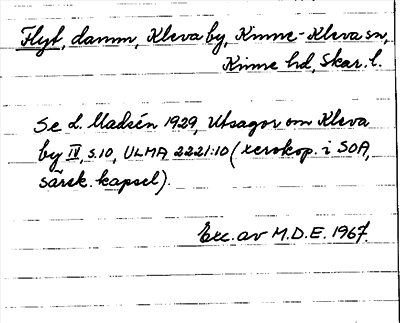 Flyt, damm, Kleva by, Kinne-Kleva sn,
Kinne hd, Skar. l.
Se L. Madsén 1929, Utsagor om Kleva
by IV, s.10, ULMA 2221:10 (xeroskop. i SOA,
särsk. kapsel).
Exc. av M.D.E. 1967.